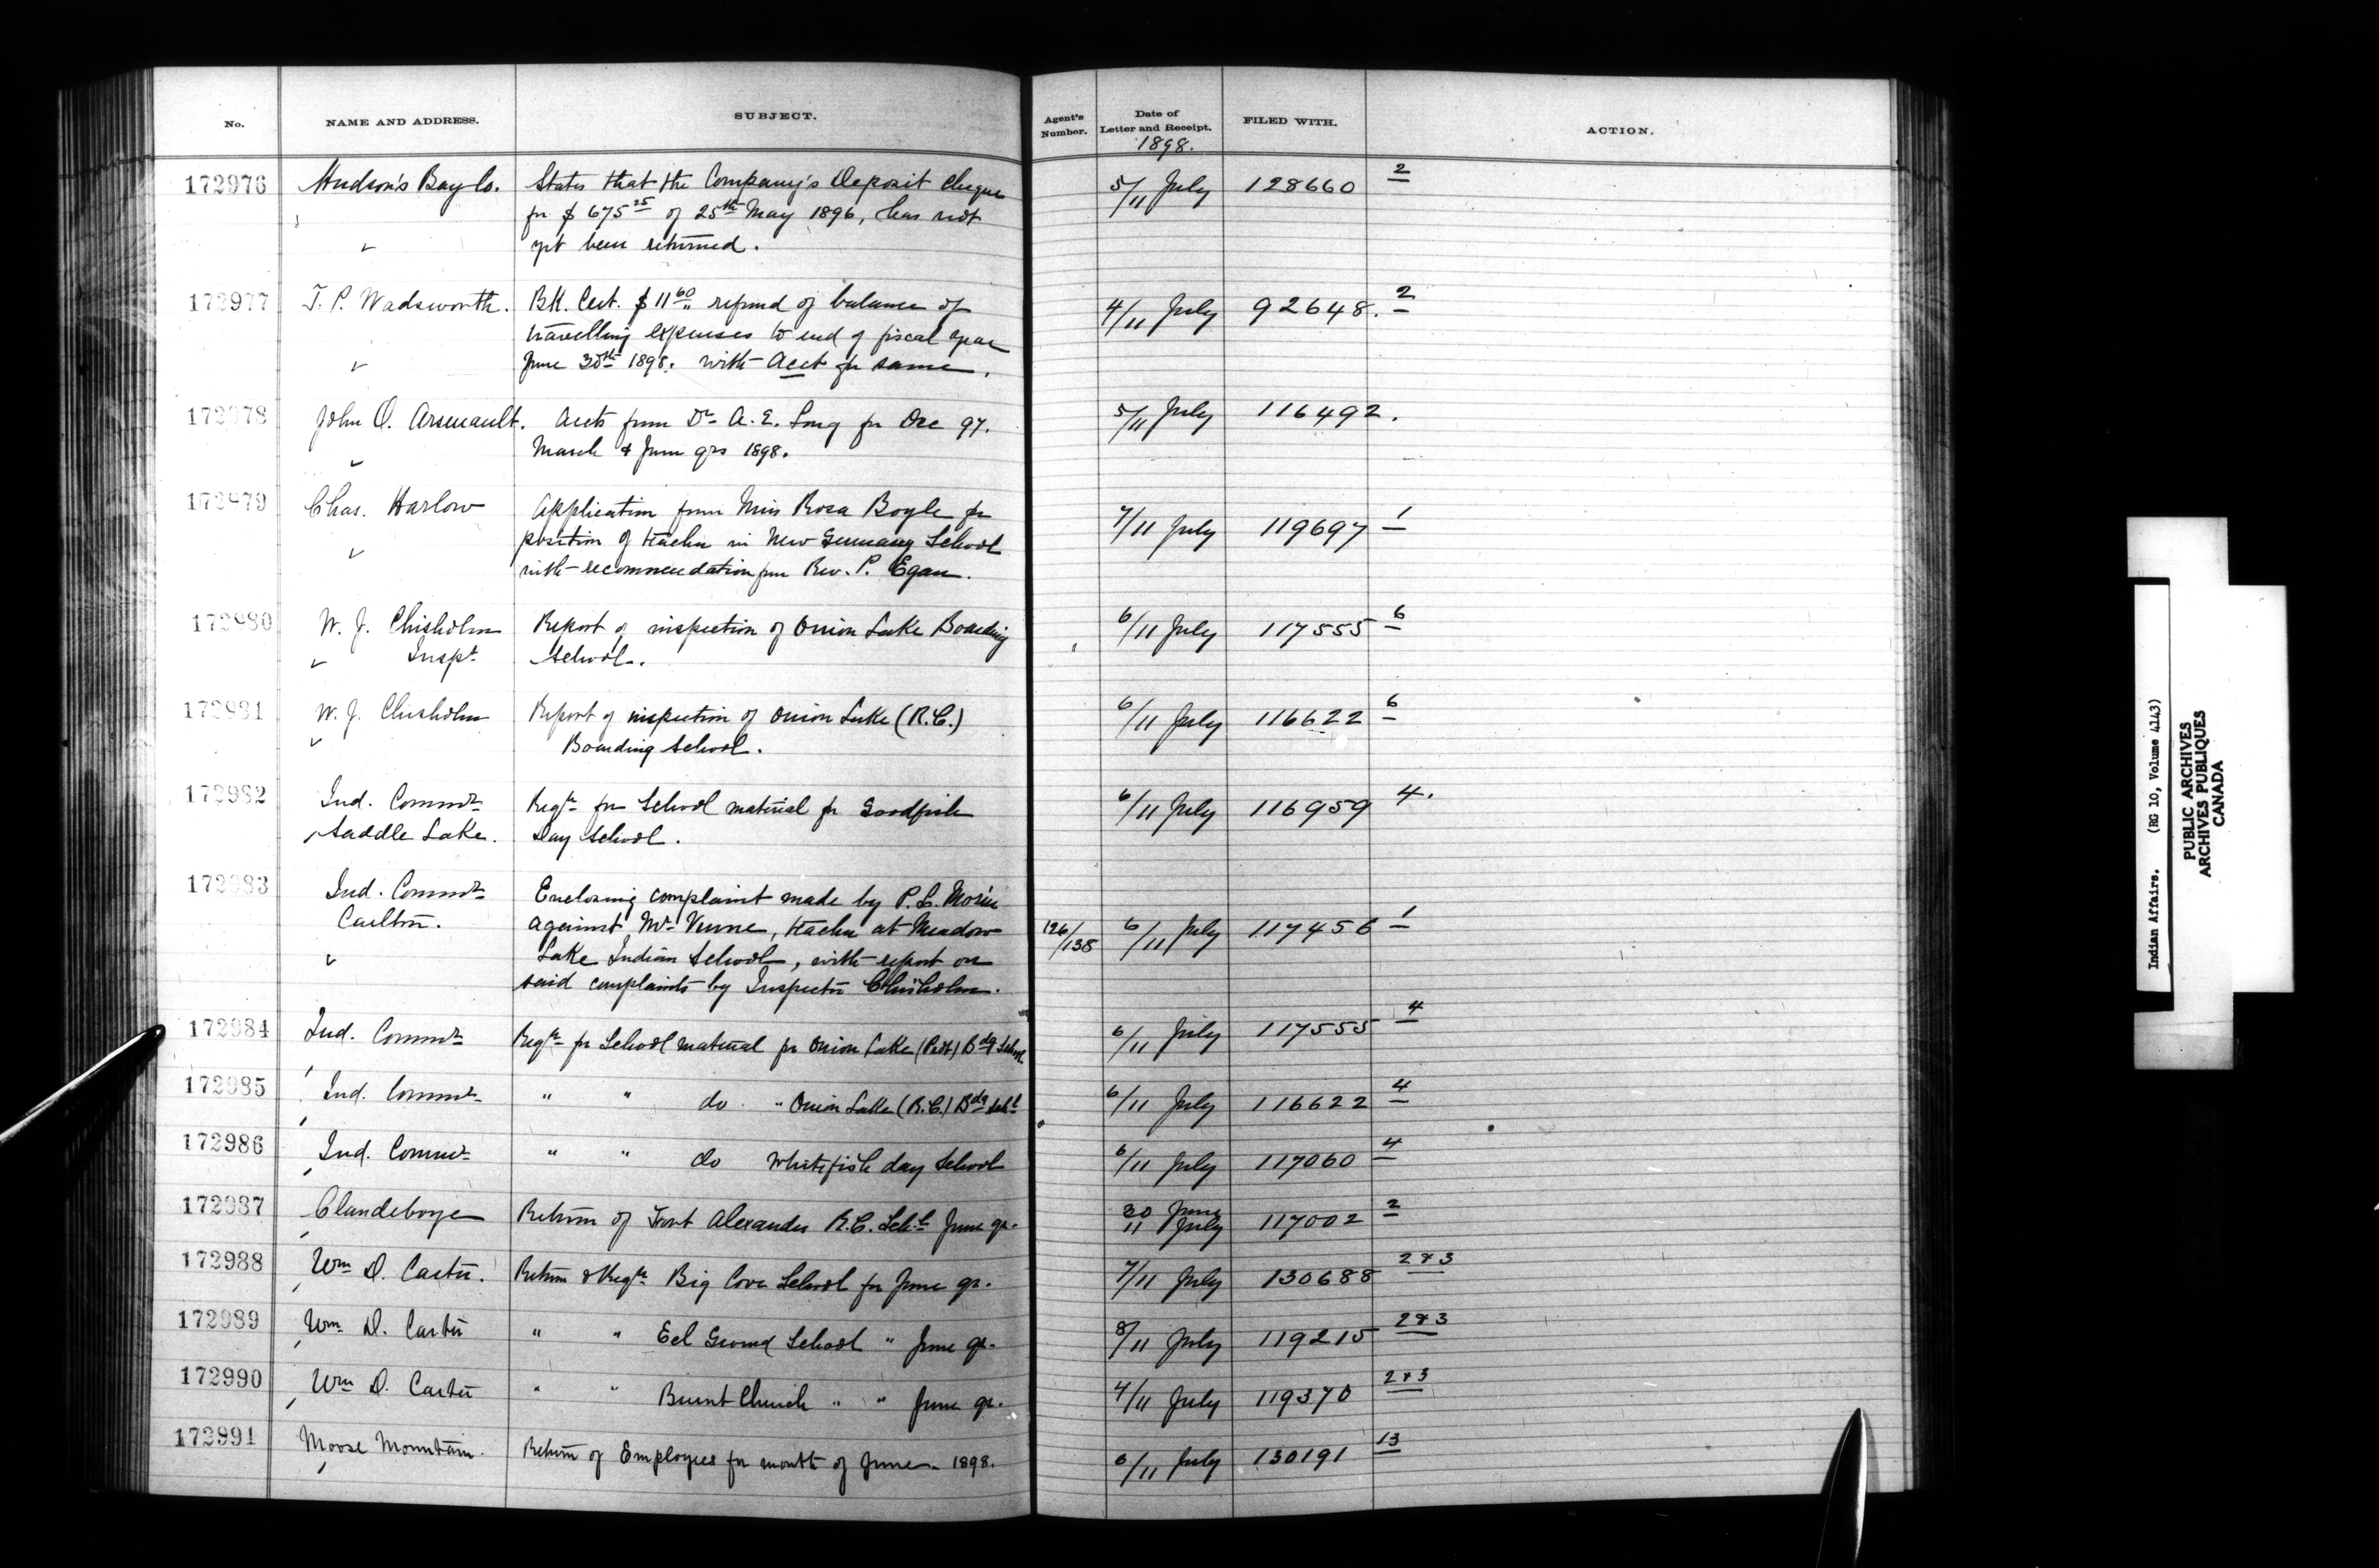 No. NAME AND ADDRESS. SUBJECT. Agent's Number. Date of Letter and Receipt. FILED WITH. ACTION.
1898.
172976 Hudson's Bay Co. States that the Company's Deposit Cheque 5/11 July 128660 2
for $ 675 25 of 25th May 1896, has not
yet been returned.
172977 T. P. Wadsworth. BK. Cert. $ 11 60 refund of balance of 4/11 July 92648. 2
travelling expenses to end of fiscal year
June 30th 1898. with Acct for same.
172978 John O. Arsenault. Accts from Dr A. E. Long for Dec 97. 5/11 July 116492.
March & June qrs 1898.
172979 Chas. Harlow Application from Miss Rosa Boyle for 7/11 July 119697 1
position of teacher in New Germany School
with recommendation from Rev. P. Egan.
172980 W. J. Chisholm Report of inspection of Onion Lake Boarding 6/11 July 117555 6
Inspt. School.
172981 W. J. Chisholm Report of inspection of Onion Lake (R.C.) 6/11 July 116622 6
Boarding School.
172982 Ind. Commr Reqn for School material for Goodfish 6/11 July 116959 4.
Saddle Lake. Day School.
172983 Ind. Commr Enclosing complaint made by P. L. Morin
Carlton. against Mr Venne, teacher at Meadow 126/138 6/11 July 117456 1
Lake Indian School, with report on
said complaints by Inspector Chisholm.
172984 Ind. Commr Reqn for School material for Onion Lake (Prot) Bdg School 6/11 July 117555 4
172985 Ind. Commr " " do " Onion Lake (R.C.) Bdg Schl 6/11 July 116622 4
172986 Ind. Commr " " do Whitefish day School 6/11 July 117060 4
172987 Clandeboye Return of Fort Alexander R.C. Schl June qr. 30 June 11 July 117002 2
172988 Wm D. Carter. Return & Reqn Big Cove School for June qr. 7/11 July 130688 2 & 3
172989 Wm D. Carter " " Eel Ground School " June qr. 8/11 July 119215 2 & 3
172990 Wm D. Carter " " Burnt Church " " June qr. 4/11 July 119370 2 & 3
172991 Moose Mountain. Return of Employees for month of June 1898. 6/11 July 130191 13
Indian Affairs. (RG 10, Volume 4143)
PUBLIC ARCHIVES
ARCHIVES PUBLIQUES
CANADA